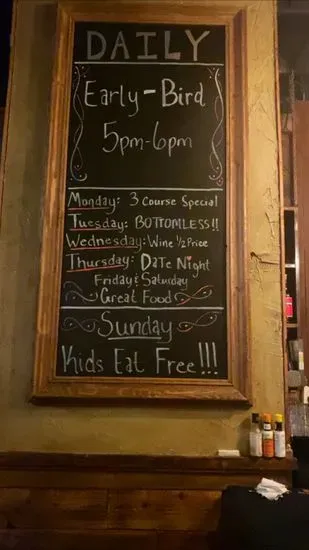 DAILY
Early-Bird
5pm-6pm
Monday: 3 Course Special
Tuesday: BOTTOMLESS!!
Wednesday: Wine 1/2 Price
Thursday: DATE Night
Friday & Saturday
Great Food
Sunday
Kids Eat Free!!!